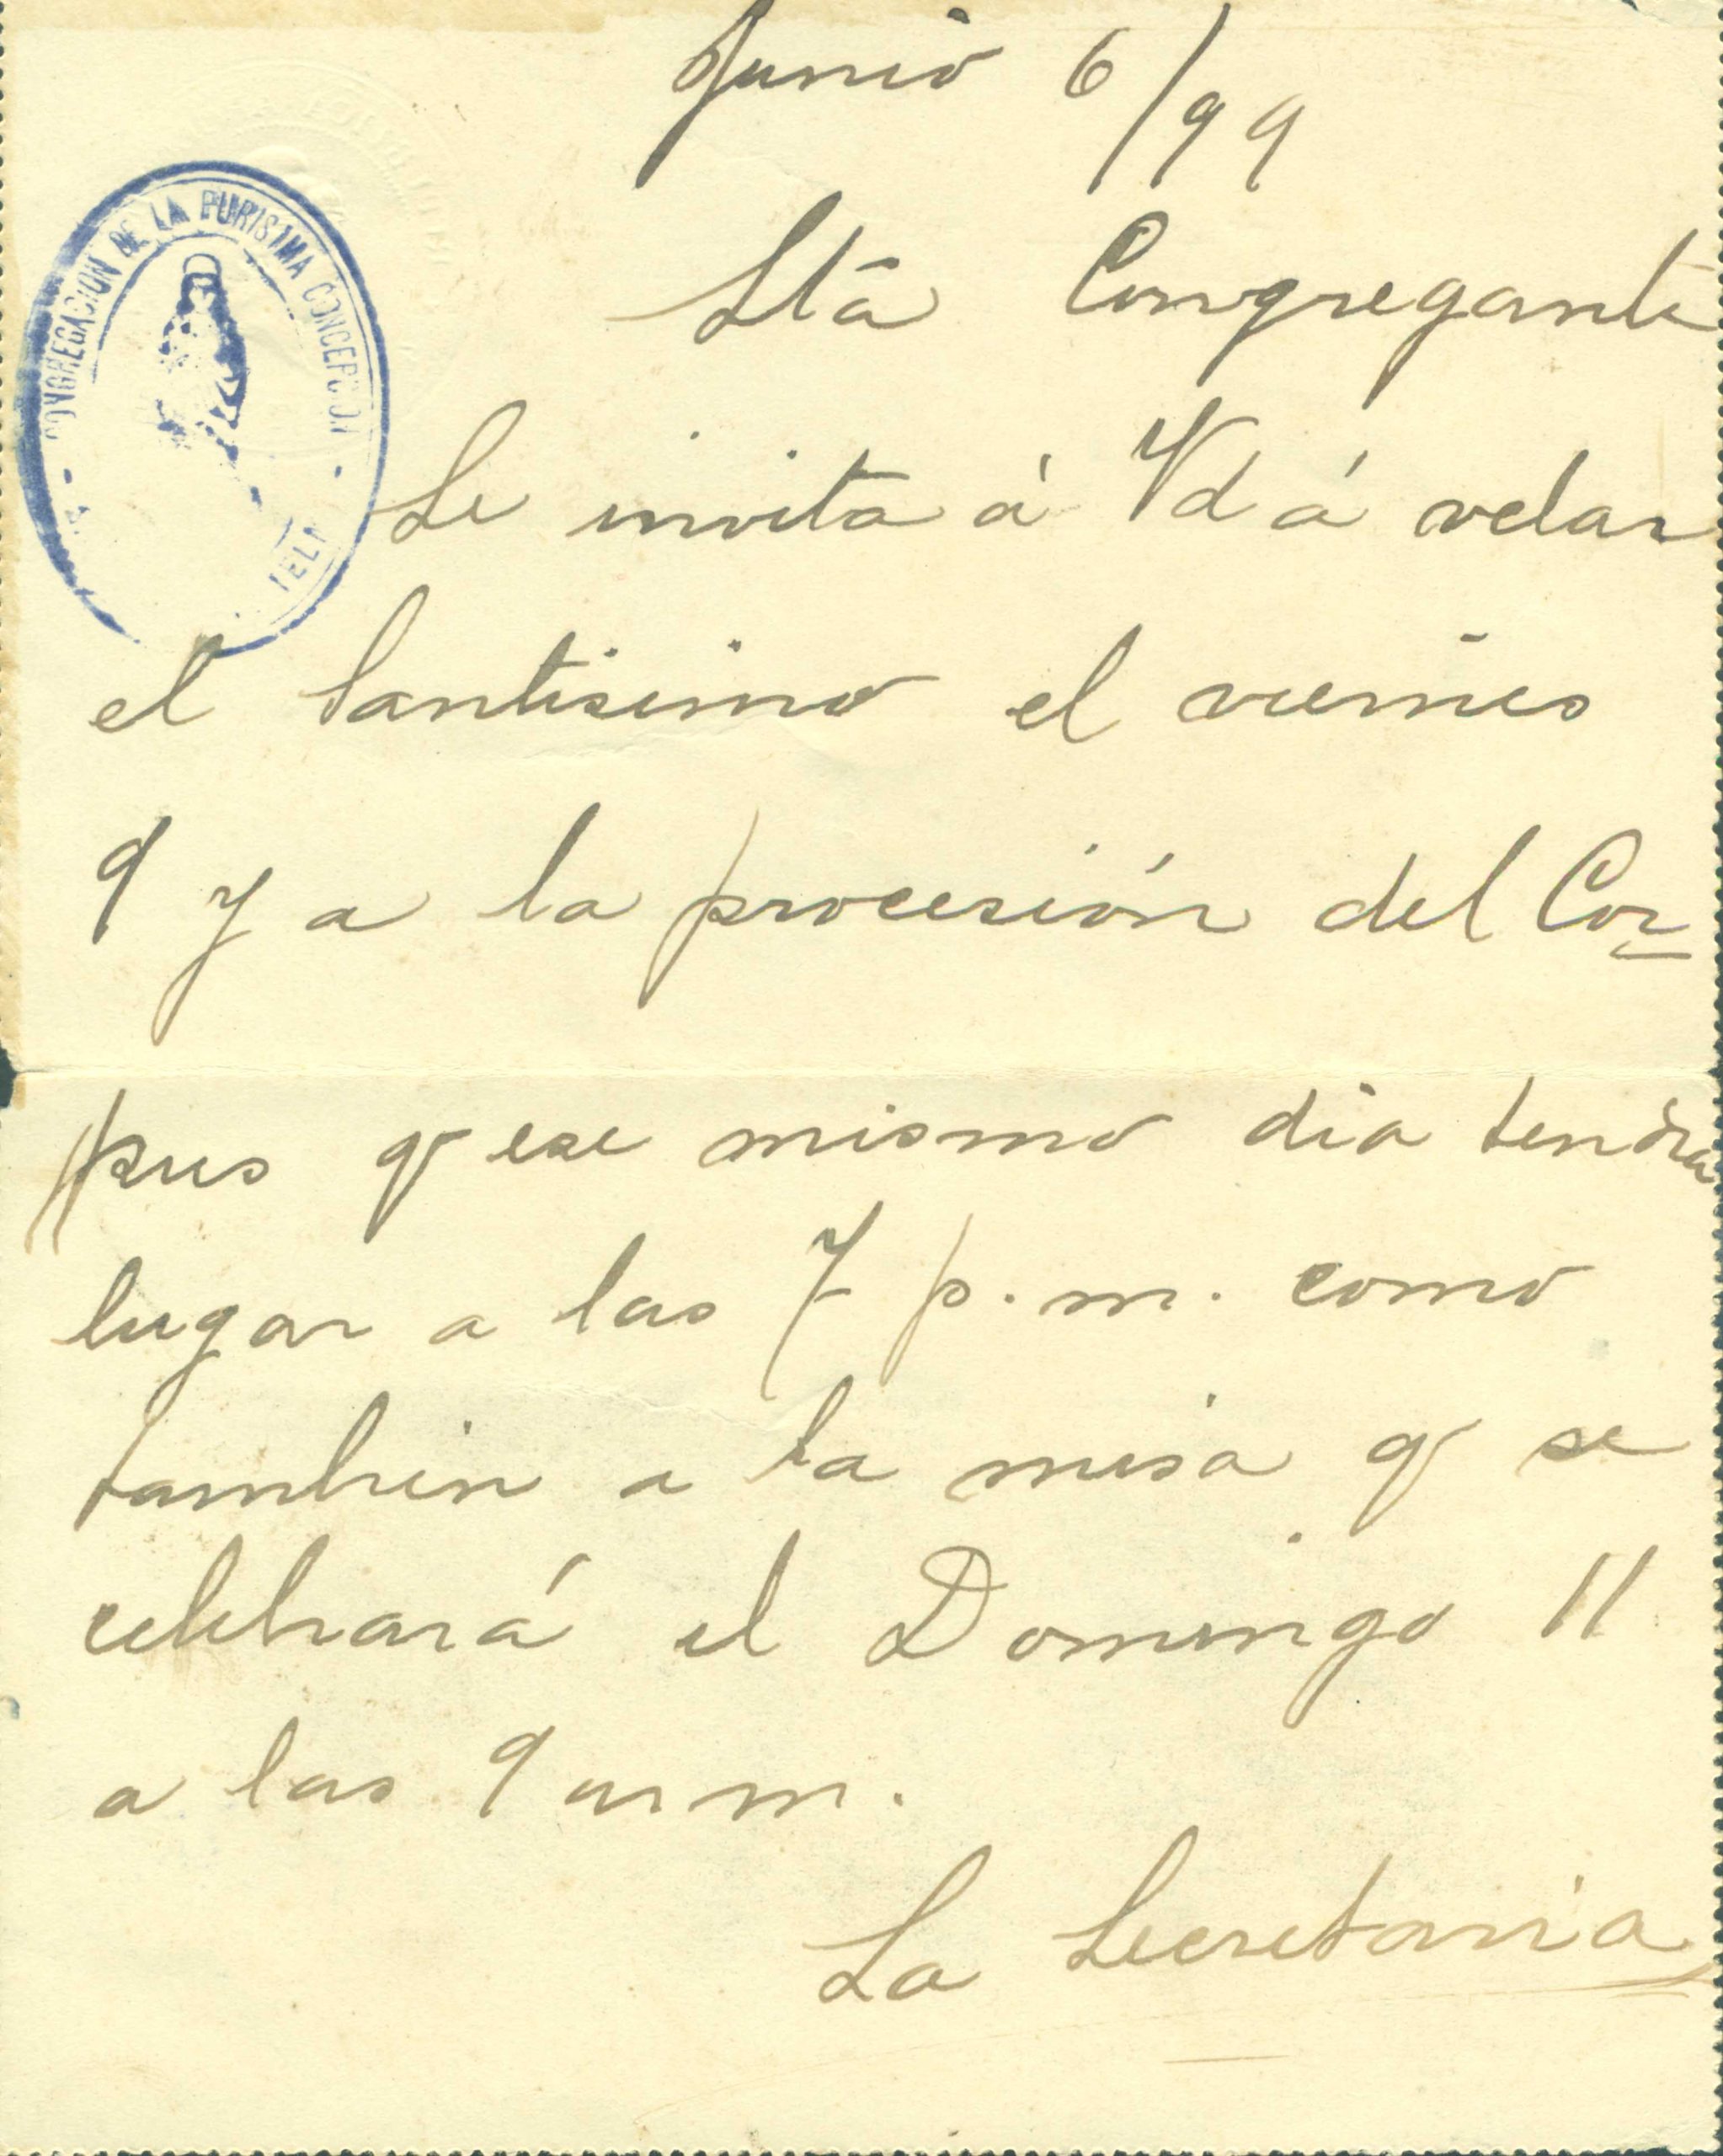 Junio 6/99
CONGREGACION DE LA PURISIMA CONCEPCION
Sta Congregante
Se invita á Vd á velar
el Santisimo el viernes
9 y a la procesión del Cor
pus q ese mismo dia tendra
lugar a las 7 p.m. como
tambien a la misa q se
celebrará el Domingo 11
a las 9 a m.
La Secretaria